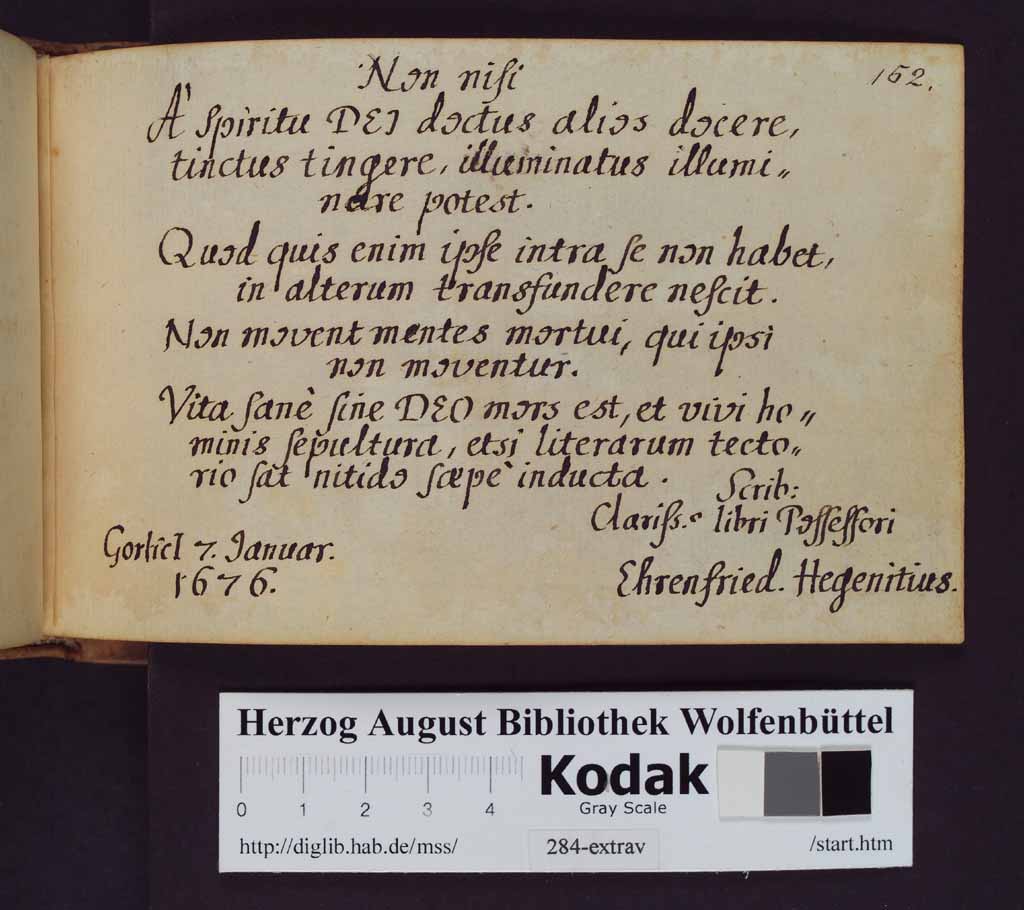 Non nisi
162.
A' Spiritu DEI doctus alios docere,
tinctus tingere, illuminatus illumi„
nare potest.
Quod quis enim ipse intra se non habet,
in alterum transfundere nescit.
Non movent mentes mortui, qui ipsi
non moventur.
Vita sanè sine DEO mors est, et vivi ho„
minis sepultura, etsi literarum tecto„
rio sat nitido sæpè inducta.
Scrib:
Clariss.º libri Possessori
Gorlicî 7. Januar.
1676.
Ehrenfried. Hegenitius.
Herzog August Bibliothek Wolfenbüttel
Kodak
Gray Scale
0 1 2 3 4
http://diglib.hab.de/mss/ 284-extrav /start.htm